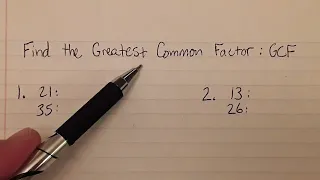 Find the Greatest Common Factor: GCF
1. 21: 2. 13:
35: 26: